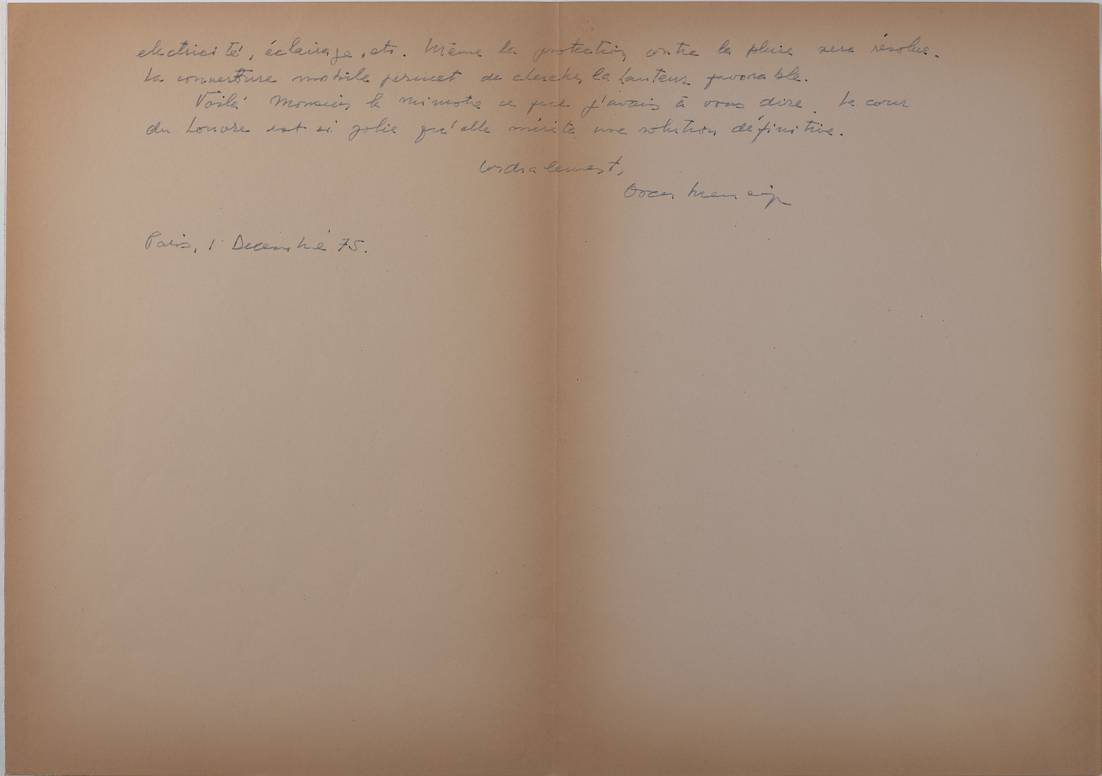 electricité, éclairage, etc. Même la protection contre la pluie sera résolue.
La couverture mobile permet de chercher la hauteur favorable.
Voilà Monsieur le ministre ce que j'avais à vous dire. La cour
du Louvre est si jolie qu'elle mérite une solution définitive.
Cordialement,
Oscar Niemeyer
Paris, 1 Decembre 75.